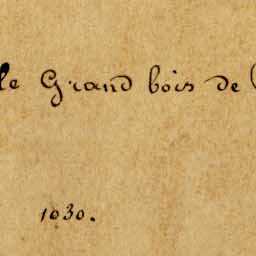 le Grand bois de
1030.